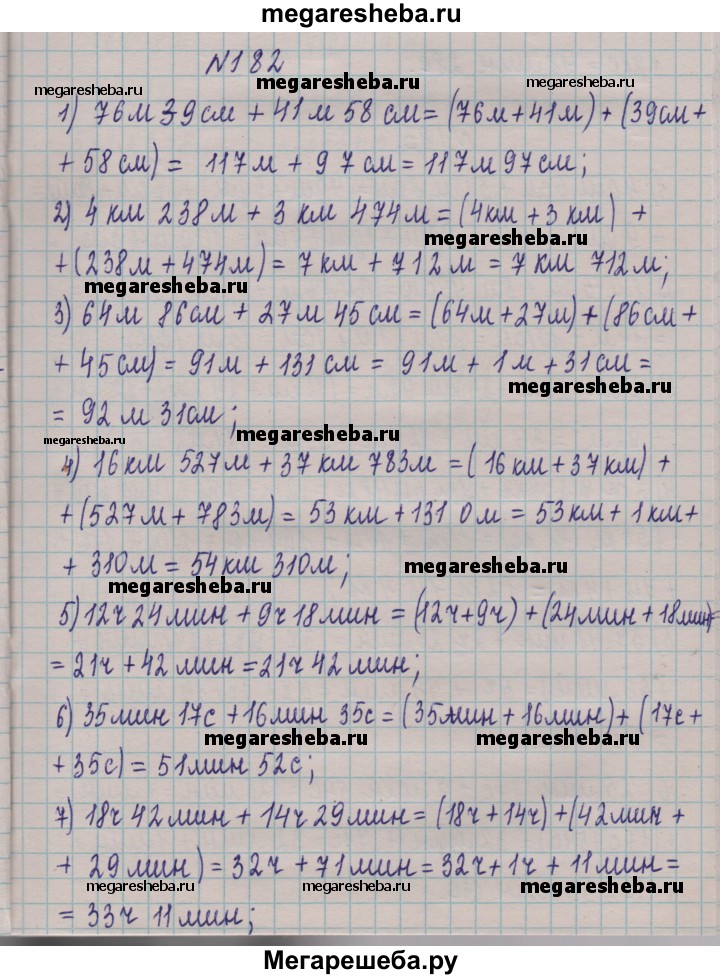 megaresheba.ru
N182
megaresheba.ru megaresheba.ru megaresheba.ru
1) 76м 39см + 41м 58 см = (76м+41м) + (39см +
+ 58см) = 117м + 97см = 117м 97см;
2) 4 км 238м + 3 км 474м = (4км + 3 км) +
megaresheba.ru
+(238м + 474м) = 7км + 712м = 7км 712м;
megaresheba.ru
3) 64м 86см + 27м 45см = (64м+27м) + (86см +
+ 45см) = 91м + 131см = 91м + 1м + 31см =
megaresheba.ru
= 92м 31см;
megaresheba.ru megaresheba.ru
4) 16км 527м + 37км 783м = (16км+37км) +
+(527м + 783м) = 53км + 1310м = 53км + 1км +
+ 310м = 54км 310м;
megaresheba.ru
megaresheba.ru
5) 12ч 24мин + 9ч 18мин = (12ч+9ч) + (24мин + 18мин)=
= 21ч + 42мин = 21ч 42мин;
6) 35мин 17с + 16мин 35с = (35мин + 16мин) + (17с +
megaresheba.ru megaresheba.ru
+ 35с) = 51мин 52с;
7) 18ч 42мин + 14ч 29мин = (18ч + 14ч) + (42мин +
+ 29мин) = 32ч + 71мин = 32ч + 1ч + 11мин =
megaresheba.ru megaresheba.ru megaresheba.ru
= 33ч 11мин;
Мегарешеба.ру